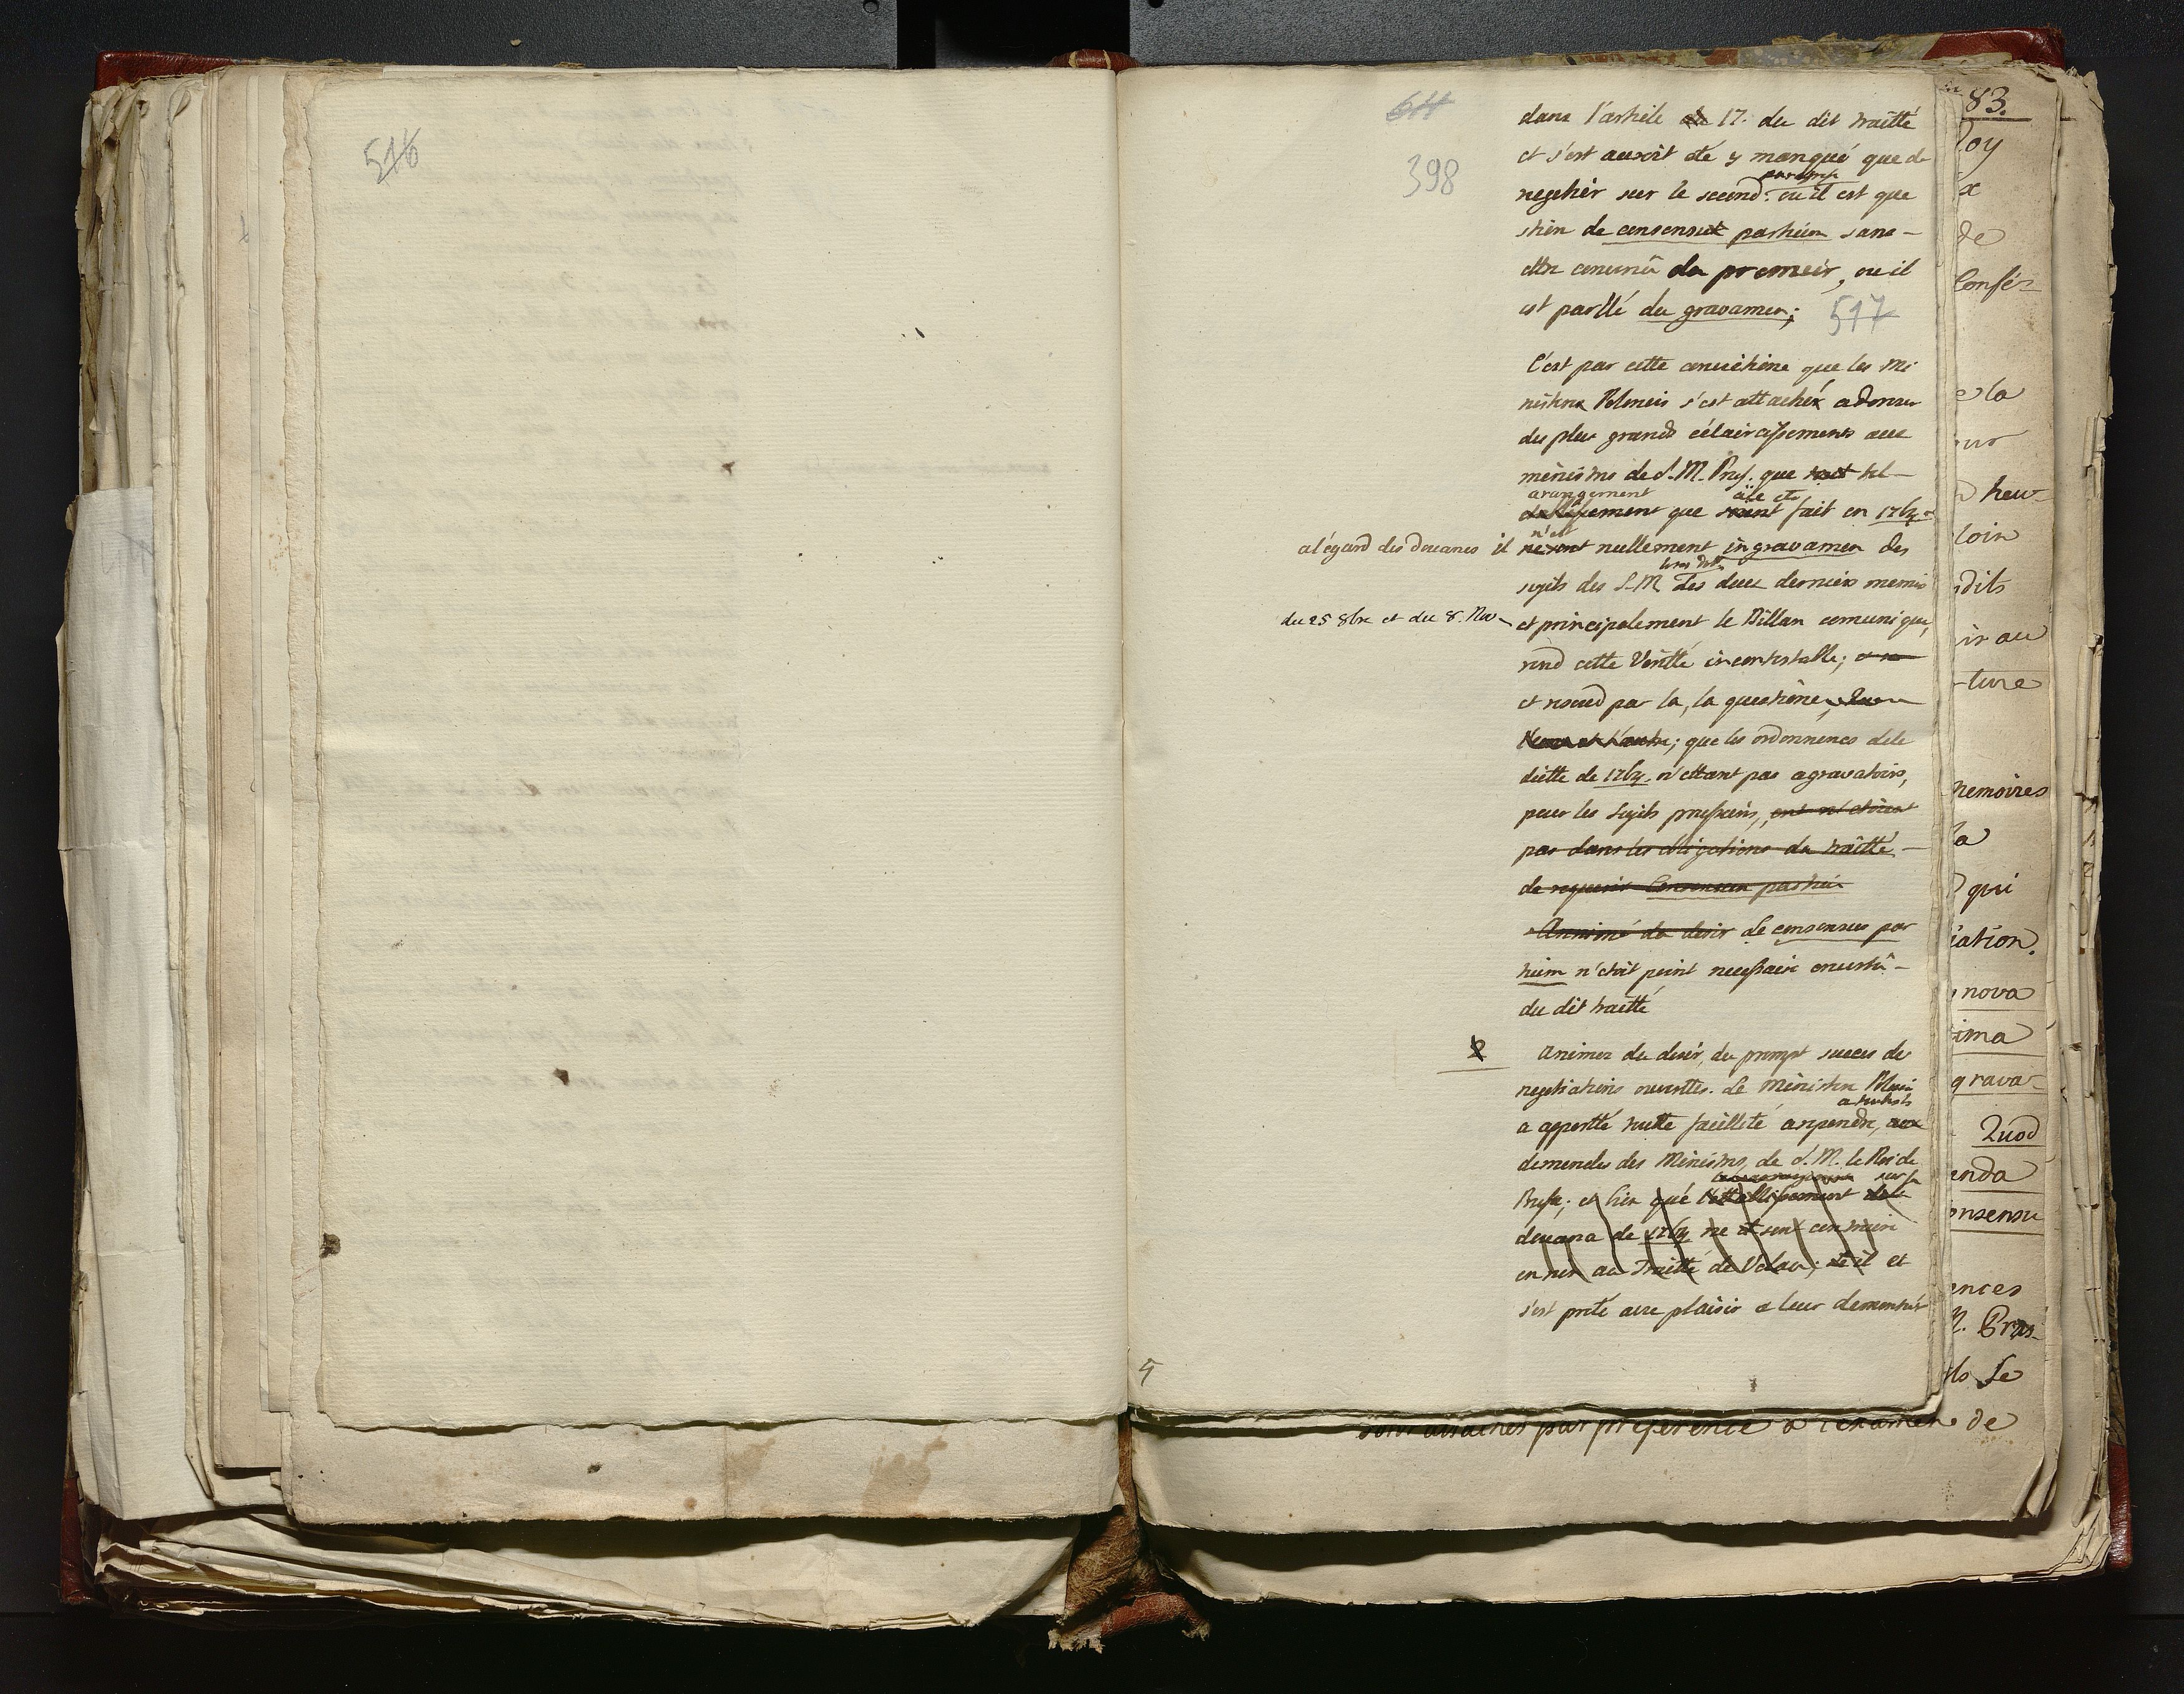 516
611
398
dans l'article du 17. du dit traitté
et s'est auroit eté y manqué que de
negotier sur le second paragrafe ou il est que
stion de consensu partium sans
ettre convenû du premeir, ou il
est parllé du gravamen;
517
C'est par cette conviction que les Mi
nistres Polonois s'est attachéx a donner
du plus grands éclaircissements aux
ministres de S. M. Prus. que tel
arangement que aïe eté fait en 1764
a l'égard des douanes il n'est nullement in gravamen des
sujets des S. M. Les deux derniers memoir
du 25 8bre et du 8. Nov et principalement le Billan comunique,
rend cette Verité incontestable;
et resoud par la, la question,
que les ordonnences de la
diette de 1764 n'ettant pas agravatoirs,
pour les Sujets prussiens, ont n'etoient
pas dans les obligations du traitté
de requerir Consensum partium
Animé du desir le consensus par
tium n'etoit point necessaire
du dit traitté
Animez du desir, du prompt succes de
negotiations ouvertes. Le Ministre Polonois
a apporté toutte facillité a repondre, aux
demendes des Ministres, de S. M. le Roi de
Prusse; et bien qué l'ettablissement de la
douana de 1764 ne soit contraire
en rien au Traitté de Velau; et il et
s'est preté avec plaisir a leur demontrér
5
83.
Roy
x
de
Confé-
e la
our
heu-
loin
dits
ir au
-ture
memoires
la
qui
iation.
nova
ima
grava-
Quod
enda
onsensu
ences
M. Prus-
Le
par preference a l'examen de